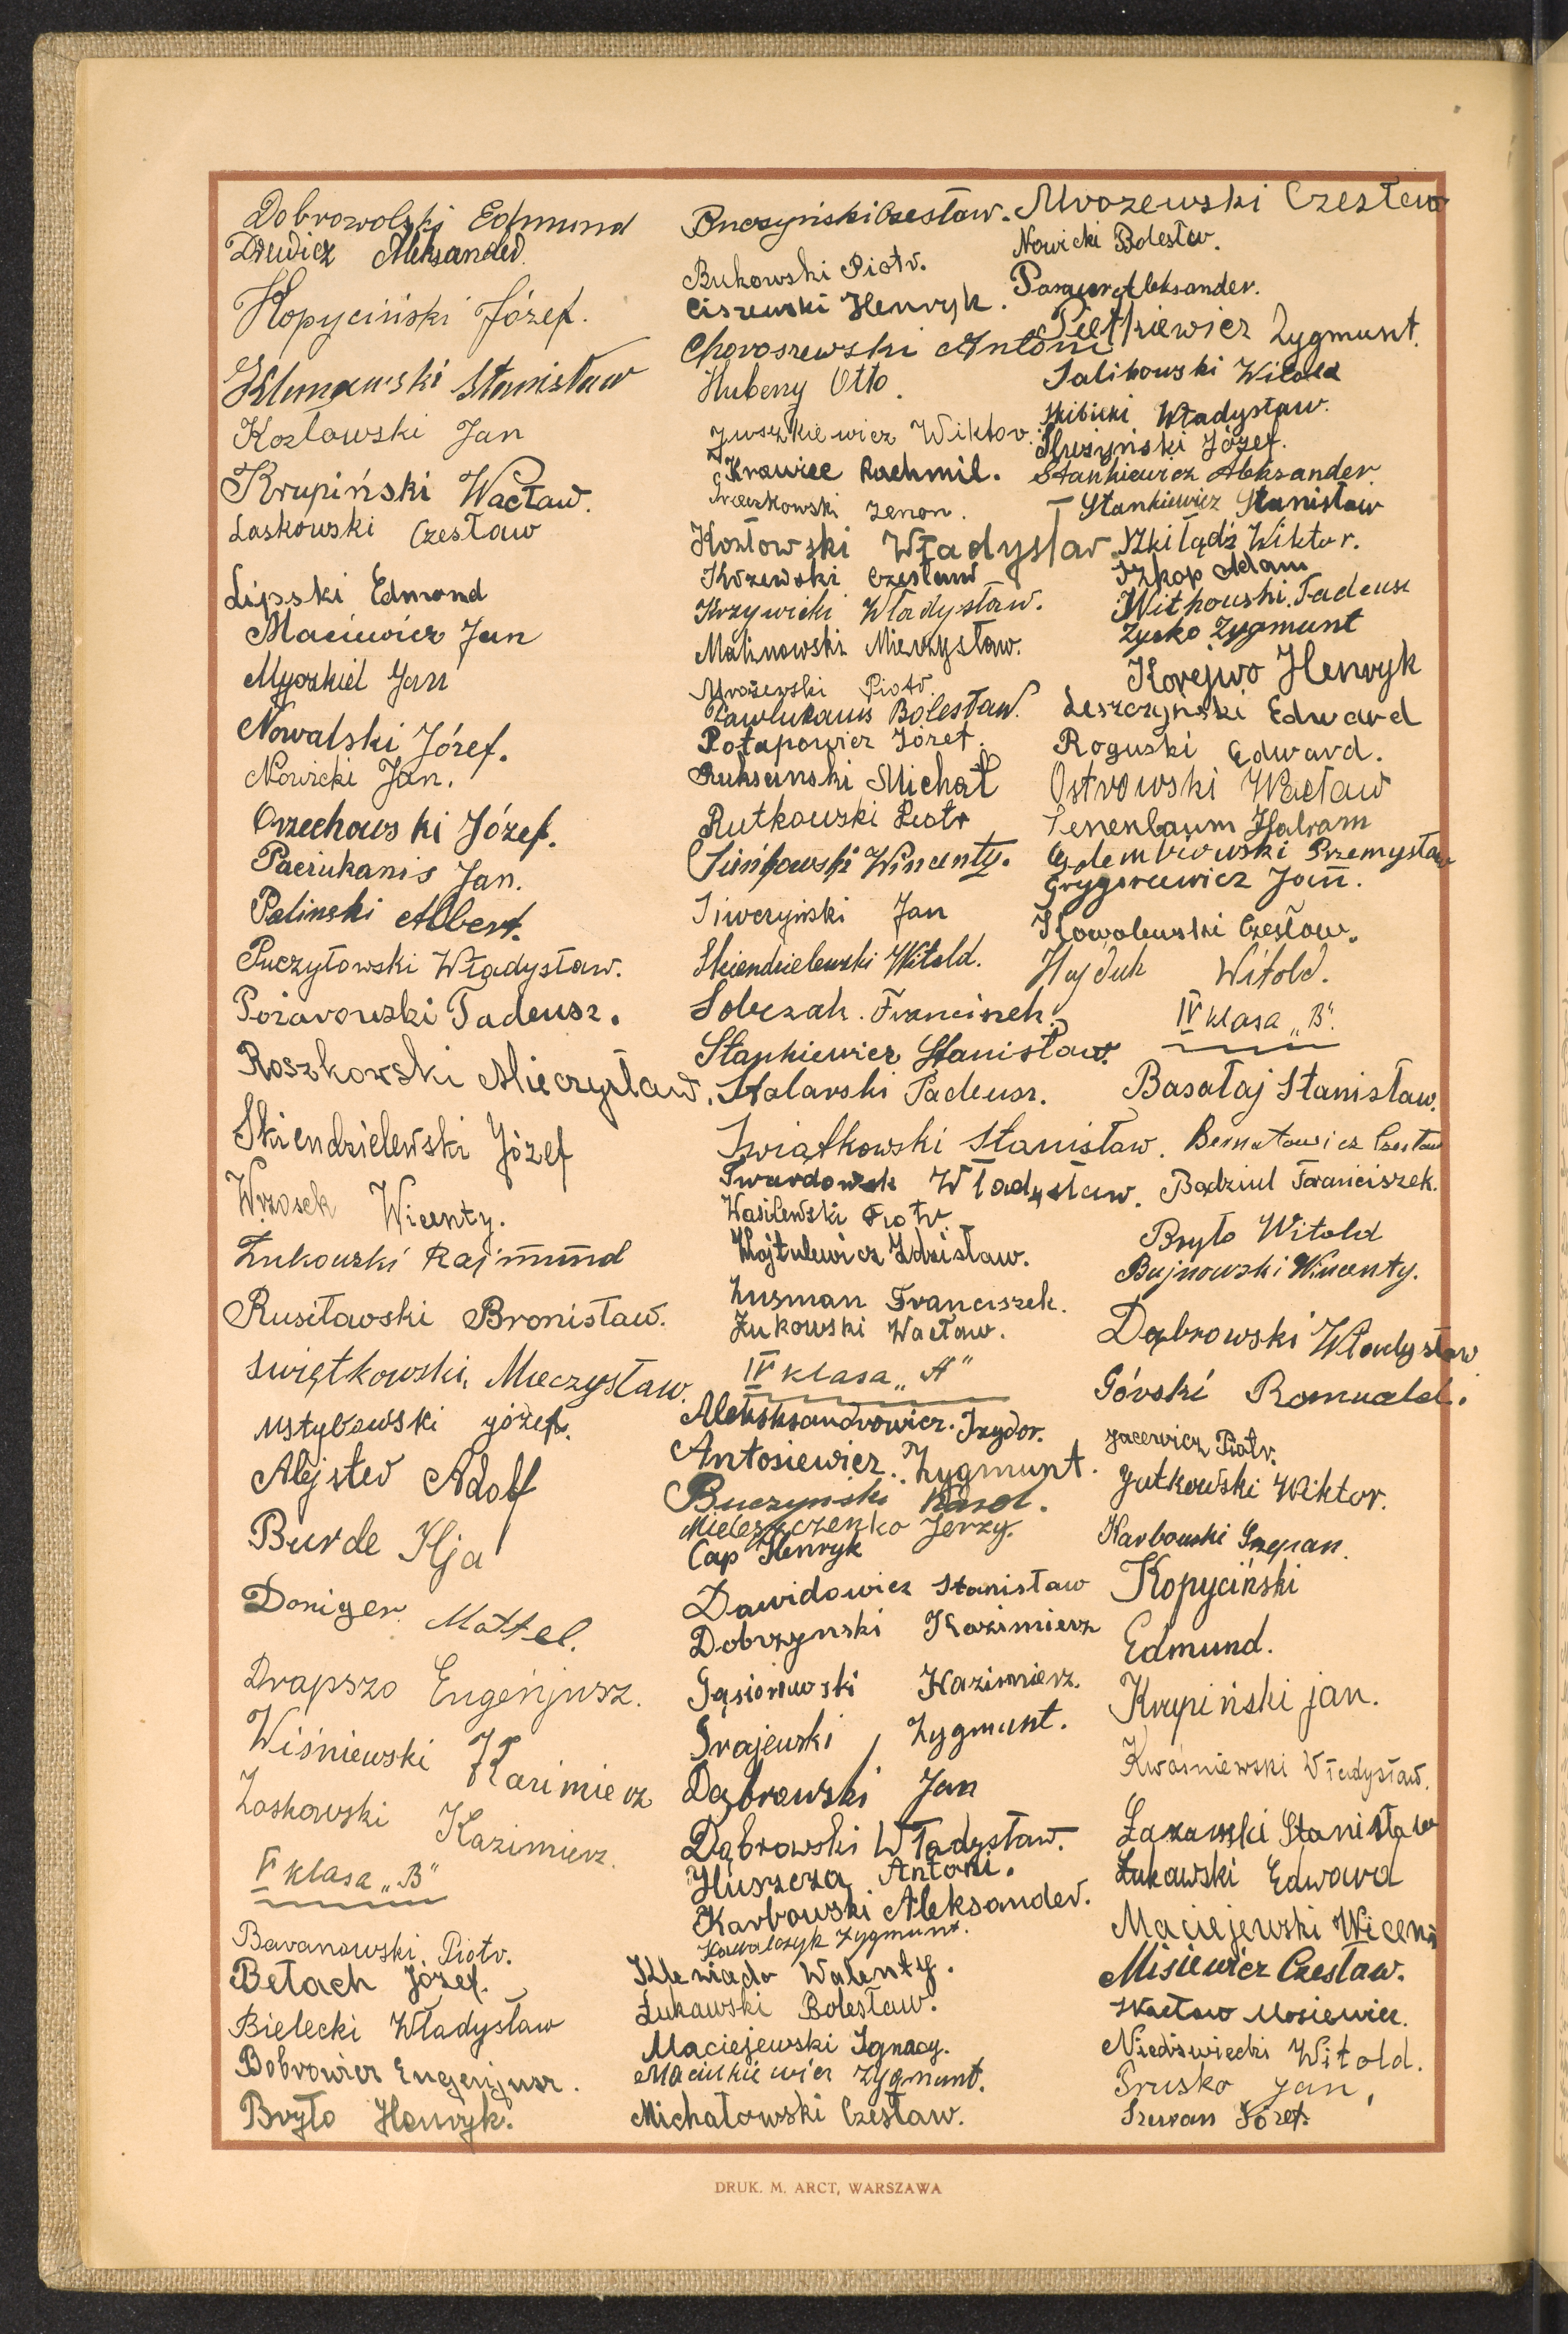 Dobrowolski Edmund
Drewicz Aleksander
Kopyciński Józef.
Klimawski Stanisław
Kozłowski Jan
Krupiński Wacław.
Laskowski Czesław
Lipski Edmond
Maciewicz Jan
Myszkiel Jan
Nowalski Józef.
Nowicki Jan.
Orzechowski Józef.
Paciukanis Jan.
Palinski Albert.
Puczyłowski Władysław.
Pożarowski Tadeusz.
Roszkowski Mieczysław.
Skiendzielewski Józef
Wrzosek Wicenty.
Żukowski Rajmund
Rusiłowski Bronisław.
Świętkowski Mieczysław.
Ustybowski Józef.
Alejster Adolf
Burde Ilja
Doniger Mottel.
Drapszo Eugenjusz.
Wiśniewski Kazimierz
Laskowski Kazimierz.
V klasa „B"
Baranowski Piotr.
Bełach Józef.
Bielecki Władysław
Bobrowicz Eugenjusz.
Bryło Henryk.
Buczyński Czesław.
Bukowski Piotr.
Ciszewski Henryk.
Choroszewski Antoni
Hubeny Otto.
Juszkiewicz Wiktor.
Krawiec Rachmil.
Zenon.
Kozłowski Władysław
Krzewski Czesław
Krzywicki Władysław.
Malinowski Mieczysław.
Mrożewski Piotr.
Pawlukanis Bolesław.
Potapowicz Józef.
Ruksanski Michał
Rutkowski Piotr
Sieńkowski Wincenty.
Siwczyński Jan
Skiendzielewski Witold.
Sobczak Franciszek.
Stankiewicz Stanisław.
Stolarski Tadeusz.
Świątkowski Stanisław.
Twardowsk Władysław.
Wasilewski Piotr
Wojtulewicz Zdzisław.
Zusman Franciszek.
Żukowski Wacław.
IV klasa „A"
Aleksksandrowicz Izydor.
Antosiewicz Zygmunt.
Buczynski Karol.
Mieleszczenko Jerzy.
Cap Henryk
Dawidowicz Stanisław
Dobrzynski Kazimierz
Gąsiorowski Kazimierz.
Grajewski Zygmunt.
Dąbrowski Jan
Dąbrowski Władysław.
Huszcza Antoni.
Karbowski Aleksander.
Kowalczyk Zygmunt.
Klewiado Walenty.
Łukawski Bolesław.
Maciejewski Ignacy.
Maciukiewicz Zygmunt.
Michałowski Czesław.
Mrozewski Czesław
Nowicki Bolesław.
Aleksander.
Pietkiewicz Zygmunt.
Salikowski Witold
Skibicki Władysław.
Słuszyński Józef.
Stankiewicz Aleksander.
Stankiewicz Stanisław
Szkilądź Wiktor.
Szkop Adam
Witkowski Tadeusz
Zysko Zygmunt
Korejwo Henryk
Leszczyński Edward
Roguski Edward.
Ostrowski Wacław
Tenenbaum
Gołembiowski Przemysław
Grygorcewicz Jan.
Kowalewski Czesław.
Hajduk Witold.
IV klasa „B".
Basałaj Stanisław.
Bernatowicz Czesław
Bądziul Franciszek.
Bryło Witold
Bujnowski Wincenty.
Dąbrowski Władysław
Górski Romuald.
Jacewicz Piotr.
Jutkowski Wiktor.
Karbowski Szczepan.
Kopyciński
Edmund.
Krupiński Jan.
Kwaśniewski Władysław.
Łazawski Stanisław
Łukawski Edward
Maciejewski Wicenty
Misiewicz Czesław.
Wacław Mosiewicz.
Niedźwiecki Witold.
Prusko Jan,
Szuran Józef.
DRUK. M. ARCT, WARSZAWA